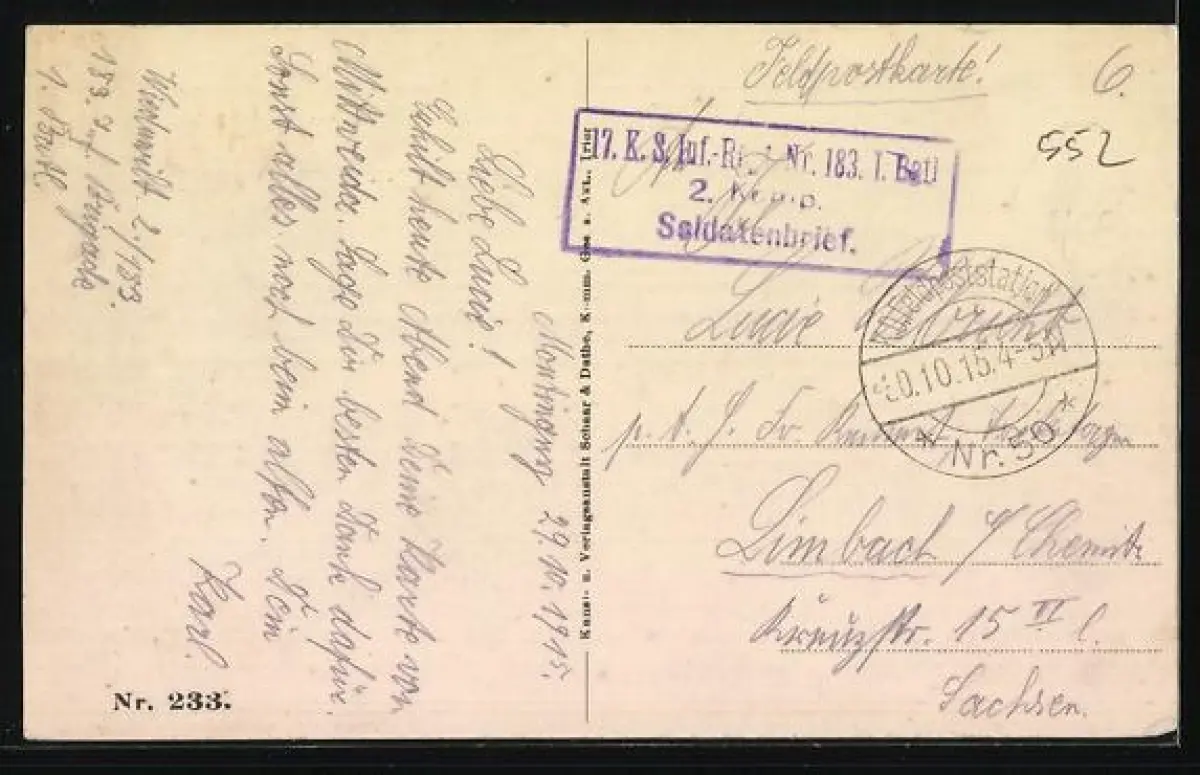 Montigny 29.10.1915.
Liebe Lucie!
Erhielt heute Abend Deine Karte von
Mittweida. Sage Dir besten Dank dafür.
Sonst alles noch beim alten. Dein
Karl.
2./183.
183. Inf. Brigade
1.
Nr. 233.
Kunst- u. Verlagsanstalt Schaar & Dathe, Komm. Ges. a. Akt., Trier
Feldpostkarte!
6.
552
17. K. S. Inf.-Regt. Nr. 183. I. Batl
2. Komp.
Soldatenbrief.
K.D. Feldpoststation
30.10.15. 4-5N
* Nr. 50 *
Lucie
p. A. J. Fr.
Limbach / Chemnitz
Kreuzstr. 15 II l.
Sachsen.